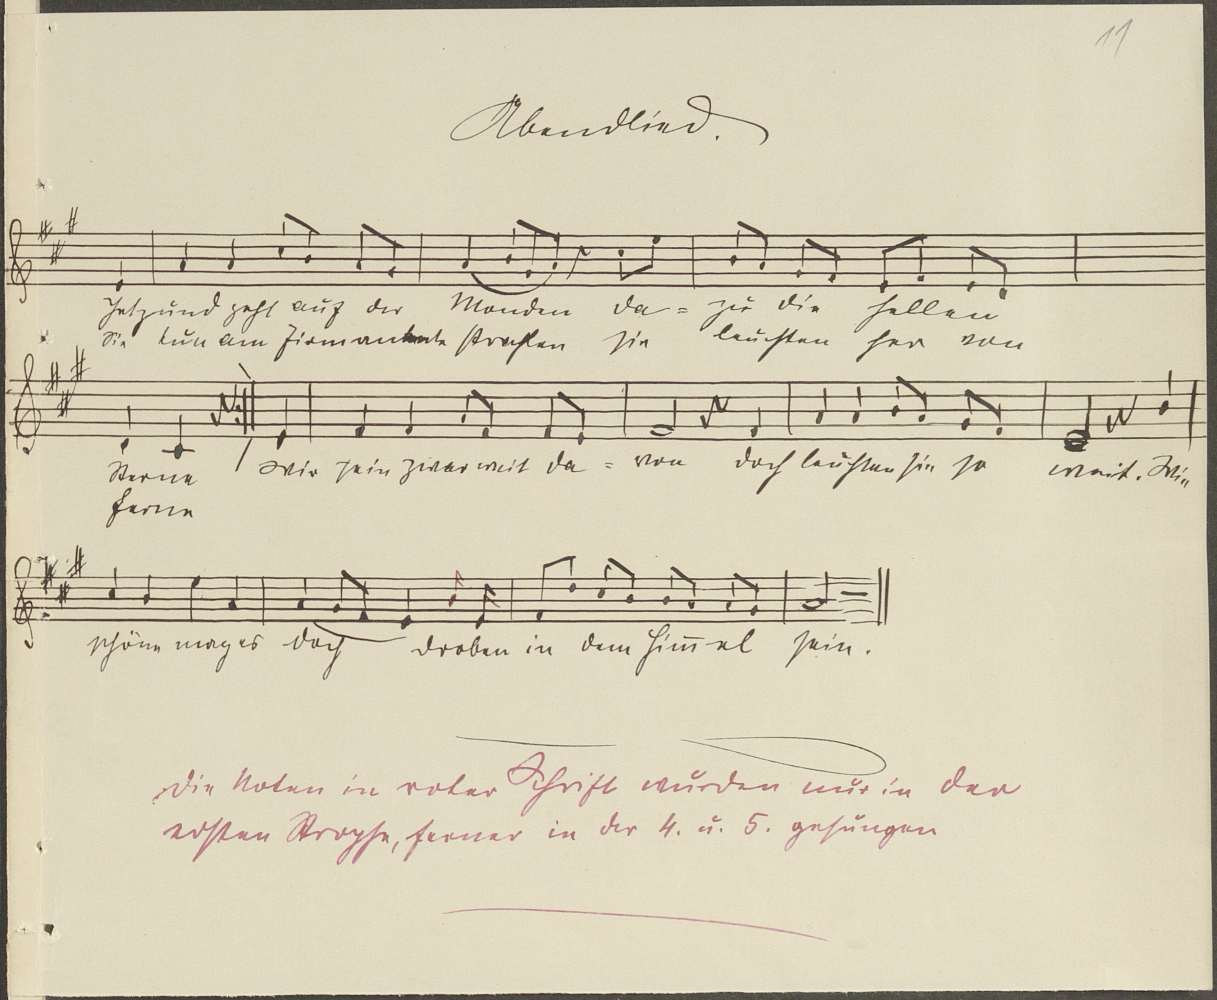 11
Abendlied.
Jetzund geht auf der Monden da= zu die hellen
Sie tun am Firmamente strahlen sie leuchten her von
Sterne Wir sein zwar weit da= von doch leuchten sie so weit. Wie
ferne
schön mag es doch droben in dem Him̄el sein.
Die Noten in roter Schrift wurden nur in der
ersten Strophe, ferner in der 4. u. 5. gesungen